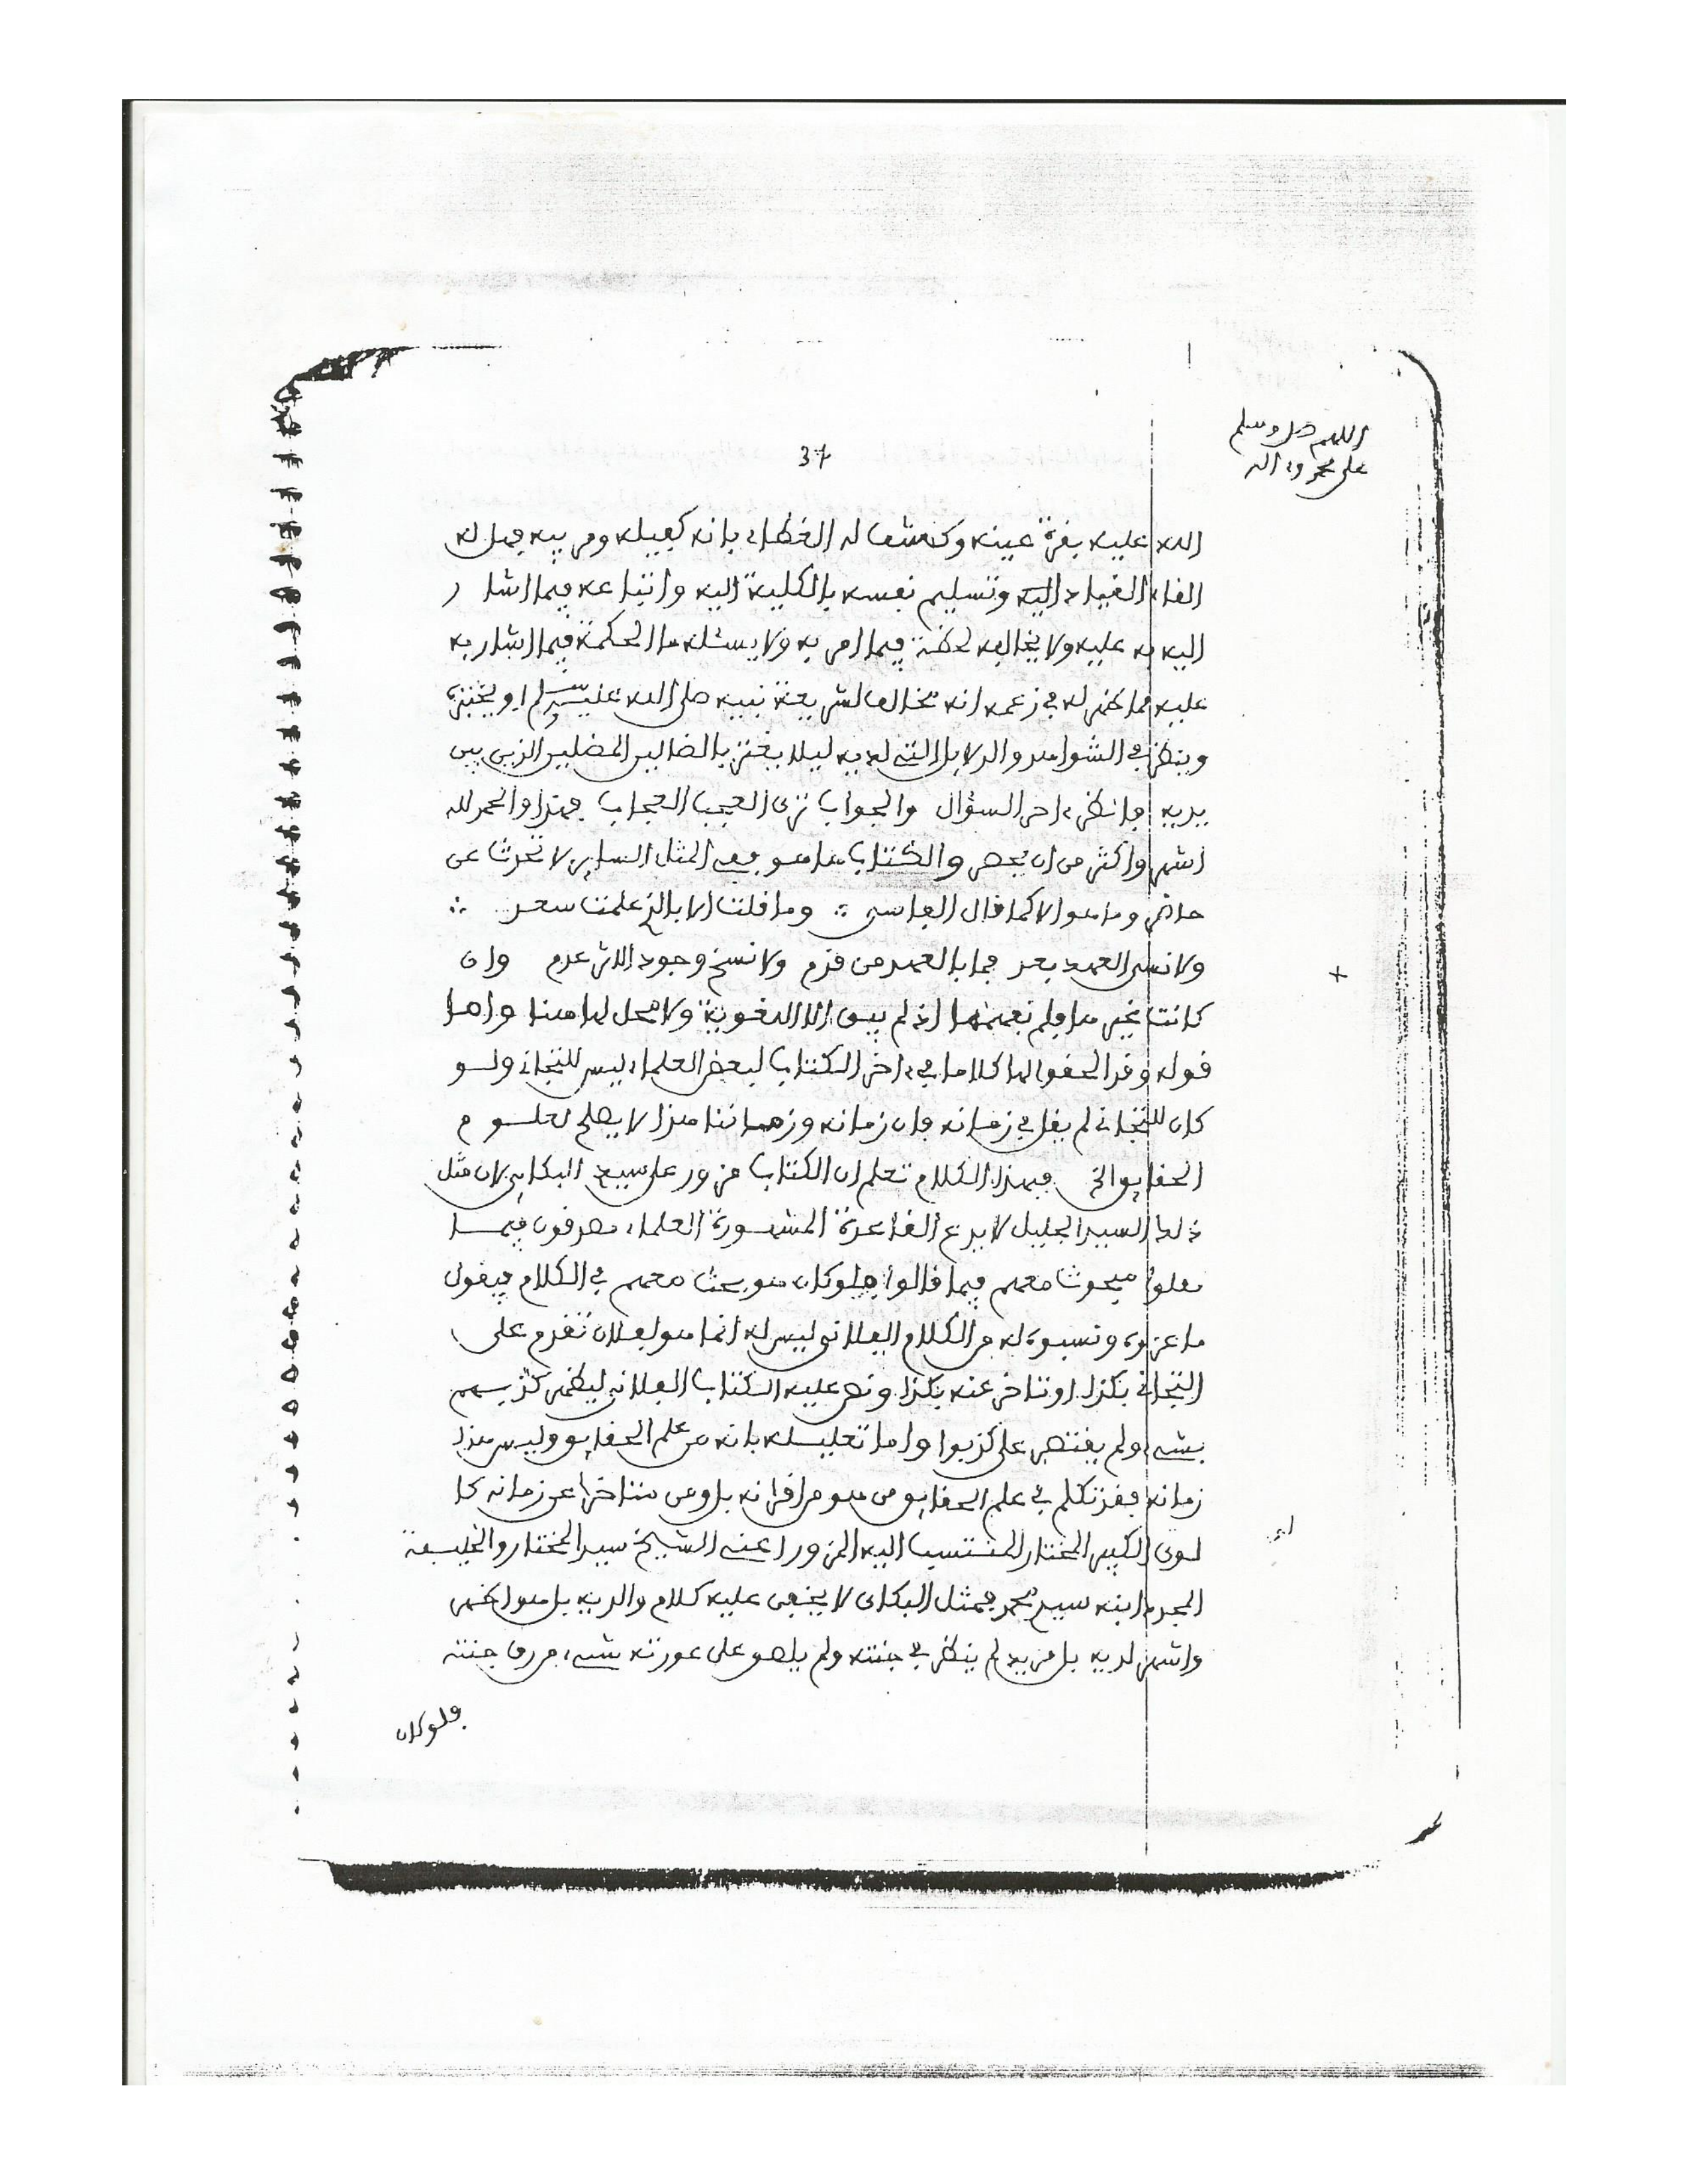 اللهم صل وسلم
على محمد واله
37
الله عليه بقرة عينه وكشف له الغطاء بانه كفيله ومربيه فهل له
الفاء القياد اليه وتسليم نفسه بالكلية اليه واتباعه فيما اشار
اليه به عليه ولا يخالفه لحظة فيما امر به ولا يسئله ما الحكمة فيما اشار به
عليه مما ظهر له في زعمه انه مخالف لشريعة نبيه صلى الله عليه وسلم او يختبره
وينظر في الشواهد والدلايل التي لديه ليلا يغتر بالضالين المضلين الذين بين
يديه فانظر ءاخر السؤال والجواب ترى العجب العجاب فهذا والحمد لله
اشهر واكثر من ان يحصر والكتاب ها هو ففي المثل الساير لا تحدث عن
حاضر وما هو الا كما قال الفاسي ∴ وما قلت الا بالذي علمت سعد ∴
ولا نسي العهد بعد فما بالعهد من قدم ولا نسخ وجود الاثر عدم وان
كانت غير ما فلم نفهمها اذ لم يبق الا اللغوية ولا محل لها هنا واما
قوله وقد الحقوا لها كلاما في ءاخر الكتاب لبعض العلماء ليس للتجاني ولو
كان للتجاني لم يقل في زمانه فان زمانه وزماننا هذا لا يصلح لعلوم
الحقايق الخ فبهذا الكلام تعلم ان الكتاب مزور على سيد البكاي لان مثل
ذلك السيد الجليل لا يدع القاعدة المشهورة العلماء مصدقون فيما
نقلوا مبحوث معهم فيما قالوا فلو كان هو بحث معهم في الكلام فيقول
ما عزوه ونسبوه له من الكلام الفلاني ليس له انما هو لفلان تقدم على
التجاني بكذا او تاخر عنه بكذا ونص عليه الكتاب الفلاني ليظهر كذبهم
بشيء ولم يقتصر على كذبوا واما تعليله بانه من علم الحقايق وليس هذا
زمانه فقد تكلم في علم الحقايق من هو من اقرانه بل ومن متاخرا عن زمانه كا
لون الكبير المختار المنتسب اليه المزور اعني الشيخ سيد المختار والخليفة
المجد ابنه سيد محمد فمثل البكاي لا يخفى عليه كلام والديه بل هو اظهر
واشهر لديه بل مريد لم ينظر في جنته ولم يلصق على عورته شيء من ورق جنته
فلو كان